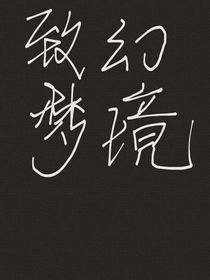 致幻
梦境